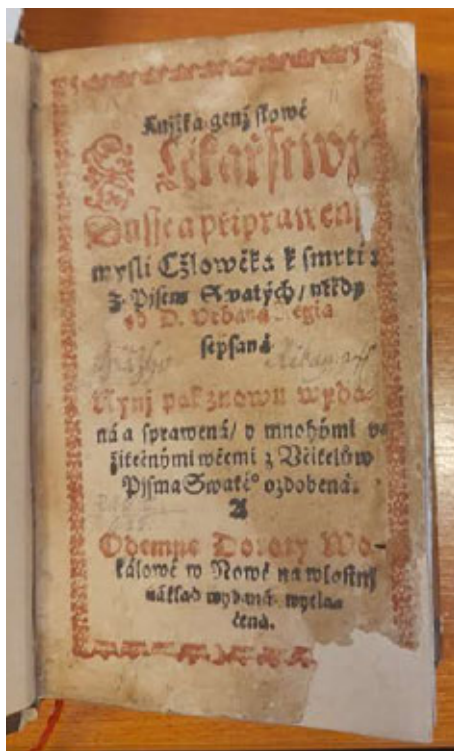 Knjžka genž slowé
Lékařstwj
Dussie a připrawenj
mysli Cžlowěka k smrti:
z Pisem Swatých/ někdy
od D. Vrbana Regia
sepsaná
Nynj pak znowu wyda-
ná a sprawená/ y mnohými vě
žitečnými wěcmi z Včitelůw
Pjsma Swatéº ozdobená.
A
Odemne Doroty Wo-
kálowé w Nowě na wlostnj
náklad wydaná wytla-
čená.